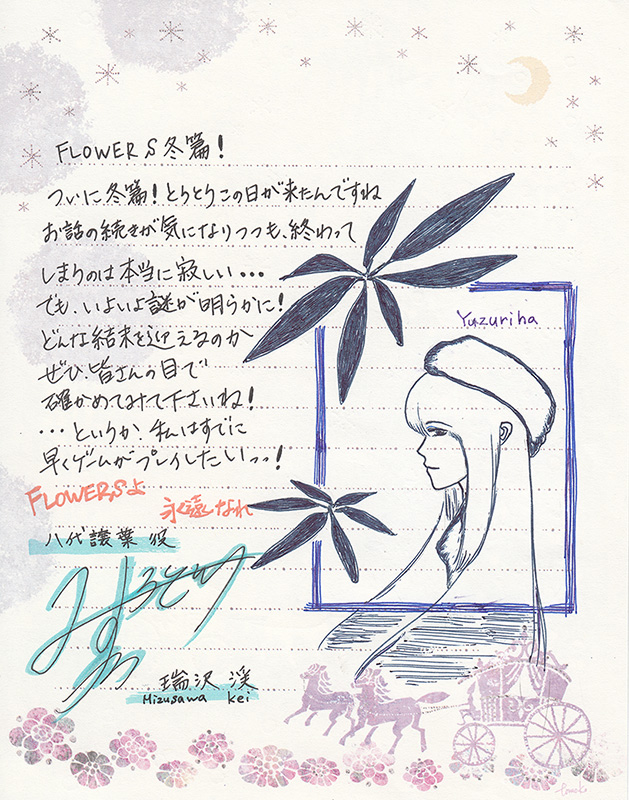 FLOWERS冬篇!
ついに冬篇!とうとうこの日が来たんですね
お話の続きが気になりつつも、終わって
しまうのは本当に寂しい・・・
でも、いよいよ謎が明らかに!
どんな結末を迎えるのか
ぜひ、皆さんの目で
確かめてみて下さいね!
・・・というか、私はすでに
早くゲームがプレイしたいっっ!
FLOWERSよ
永遠なれ
Yuzuriha
八代譲葉 役
瑞沢 渓
Mizusawa Kei